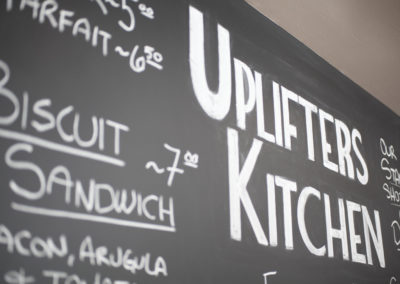 PARFAIT ~6.50
BISCUIT
SANDWICH ~7.00
BACON, ARUGULA
UPLIFTERS
KITCHEN
OUR